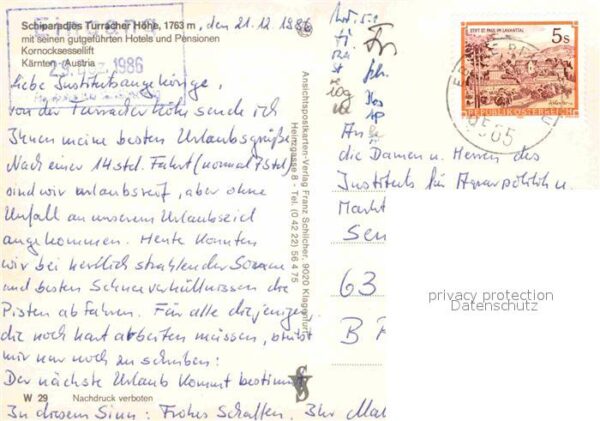 Schiparadies Turracher Höhe, 1763 m, den 21.12.1986
mit seinen gutgeführten Hotels und Pensionen
Kornocksessellift
Kärnten, Austria
1986
Liebe Institutsangehörige,
von der Turracher Höhe sende ich
Ihnen meine besten Urlaubsgrüße
Nach einer 14 std. Fahrt (normal 7 Std)
sind wir urlaubsreif, aber ohne
Unfall an unserem Urlaubsziel
angekommen. Heute konnten
wir bei herrlich strahlender Sonne
und besten Schneeverhältnissen die
Pisten abfahren. Für alle diejenigen,
die noch hart arbeiten müssen, bleibt
mir nur noch zu schreiben:
Der nächste Urlaub kommt bestimmt
W 29 Nachdruck verboten
In diesem Sinn: Frohes Schaffen. Ihr
Ansichtspostkarten-Verlag Franz Schilcher, 9020 Klagenfurt
Heinzgasse 8 - Tel. (0 42 22) 56 4 75
STIFT ST. PAUL IM LAVANTTAL
5s
REPUBLIK ÖSTERREICH
9565
An
die Damen u. Herren des
Instituts für Agrarpolitik u.
Markt
Sen
63
privacy protection
Datenschutz